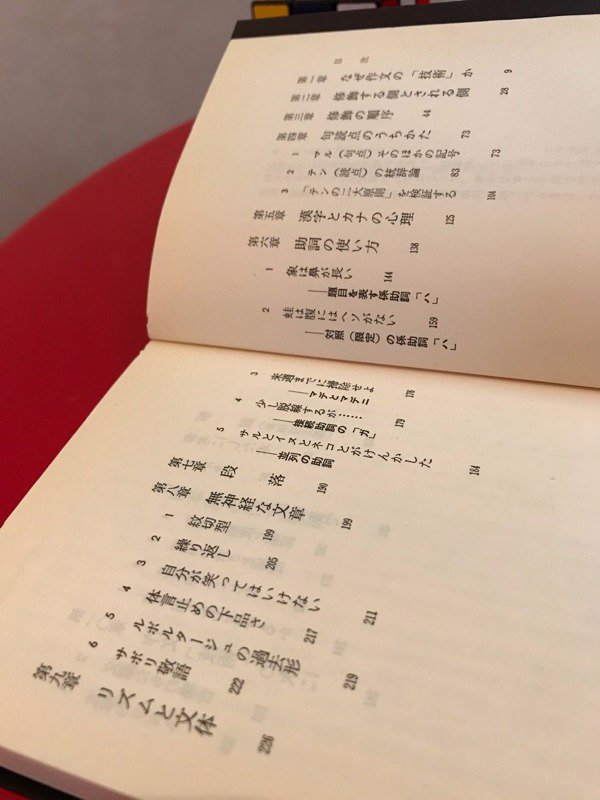 目 次
第一章 なぜ作文の「技術」か 9
第二章 修飾する側とされる側 28
第三章 修飾の順序 44
第四章 句読点のうちかた 73
1 マル(句点)そのほかの記号 73
2 テン(読点)の統辞論 83
3 「テンの二大原則」を検証する 104
第五章 漢字とカナの心理 125
第六章 助詞の使い方 138
1 象は鼻が長い 144
——題目を表す係助詞「ハ」
2 蛙は腹にはヘソがない 159
——対照(限定)の係助詞「ハ」
3 来週までに掃除せよ 176
——マデとマデニ
4 少し脱線するが…… 179
——接続助詞の「ガ」
5 サルとイヌとネコとがけんかした 184
——並列の助詞
第七章 段落 190
第八章 無神経な文章 199
1 紋切型 199
2 繰り返し 205
3 自分が笑ってはいけない 211
4 体言止めの下品さ 217
5 ルポルタージュの過去形 219
6 サボリ敬語 222
第九章 リズムと文体 226